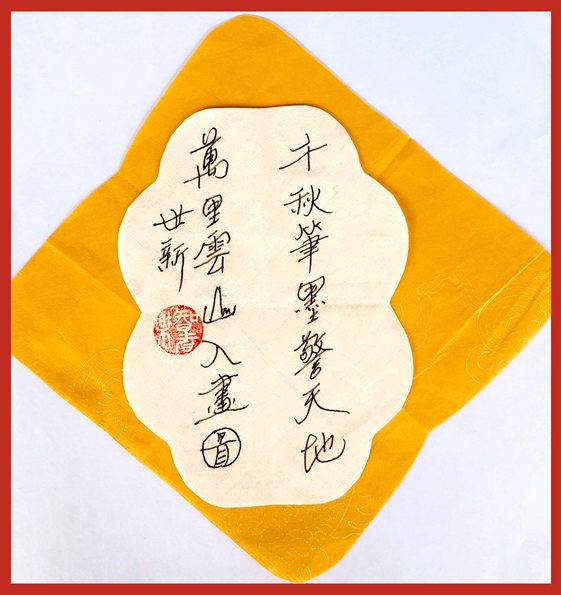 千秋筆墨驚天地
萬里雲山入畫圖
世新